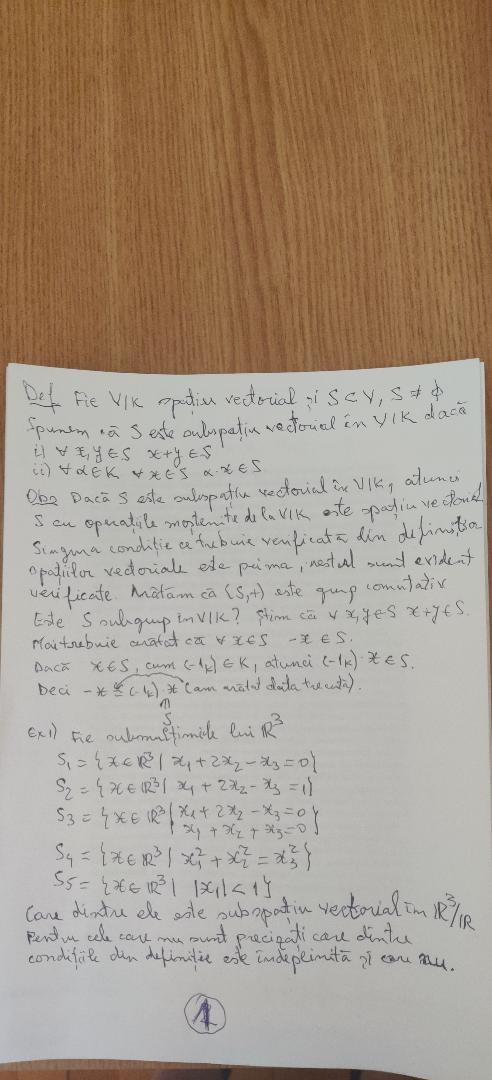 Def Fie V/K spațiu vectorial și S⊂V, S ≠ ϕ
Spunem că S este subspațiu vectorial în V/K dacă
i) ∀ x,y∈S x+y∈S
ii) ∀α∈K ∀x∈S α·x∈S
Obs Dacă S este subspațiu vectorial în V/K, atunci
S cu operațiile moștenite de la V/K este spațiu vectorial
Singura condiție ce trebuie verificată din definiția
spațiilor vectoriale este prima, restul sunt evident
verificate. Arătăm că (S,+) este grup comutativ
Este S subgrup în V/K? Știm că ∀ x,y∈S x+y∈S.
Mai trebuie arătat că ∀ x∈S -x∈S.
Dacă x∈S, cum (-1_K)∈K, atunci (-1_K)·x∈S.
Deci -x = (-1_K)·x (am arătat data trecută).
∩
S
Ex1) Fie submulțimile lui ℝ³
S₁ = {x∈ℝ³ | x₁+2x₂-x₃=0}
S₂ = {x∈ℝ³ | x₁+2x₂-x₃=1}
S₃ = {x∈ℝ³ | x₁+2x₂-x₃=0
x₁+x₂+x₃=0}
S₄ = {x∈ℝ³ | x₁²+x₂²=x₃²}
S₅ = {x∈ℝ³ | |x₁|<1}
Care dintre ele este subspațiu vectorial în ℝ³/ℝ
Pentru cele care nu sunt precizați care dintre
condițiile din definiție este îndeplinită și care nu.
1